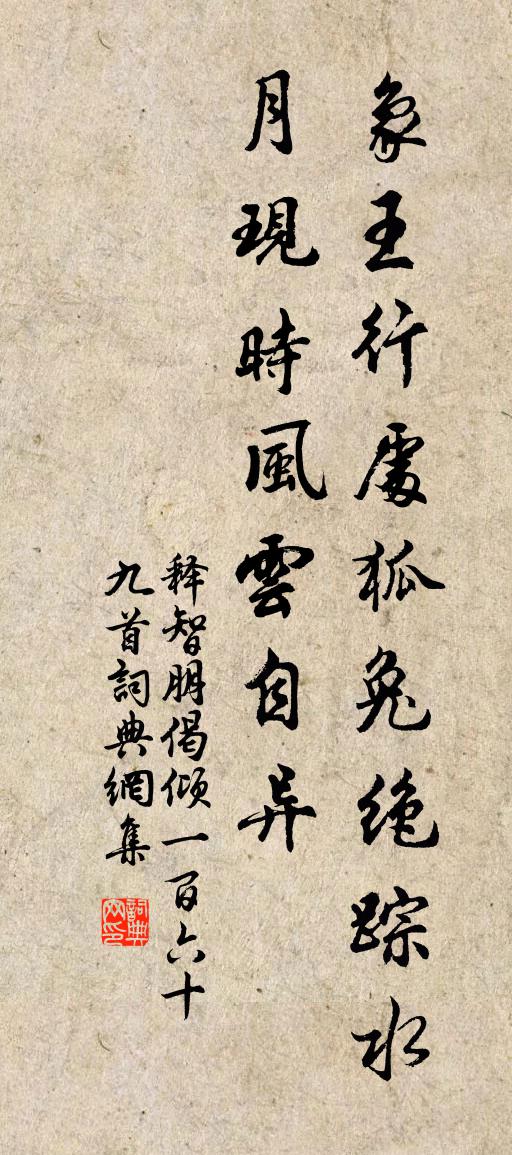 象王行處狐兔絶踪水
月現時風雲自异
釋智朋偈傾一百六十
九首詞典網集
詞典網印